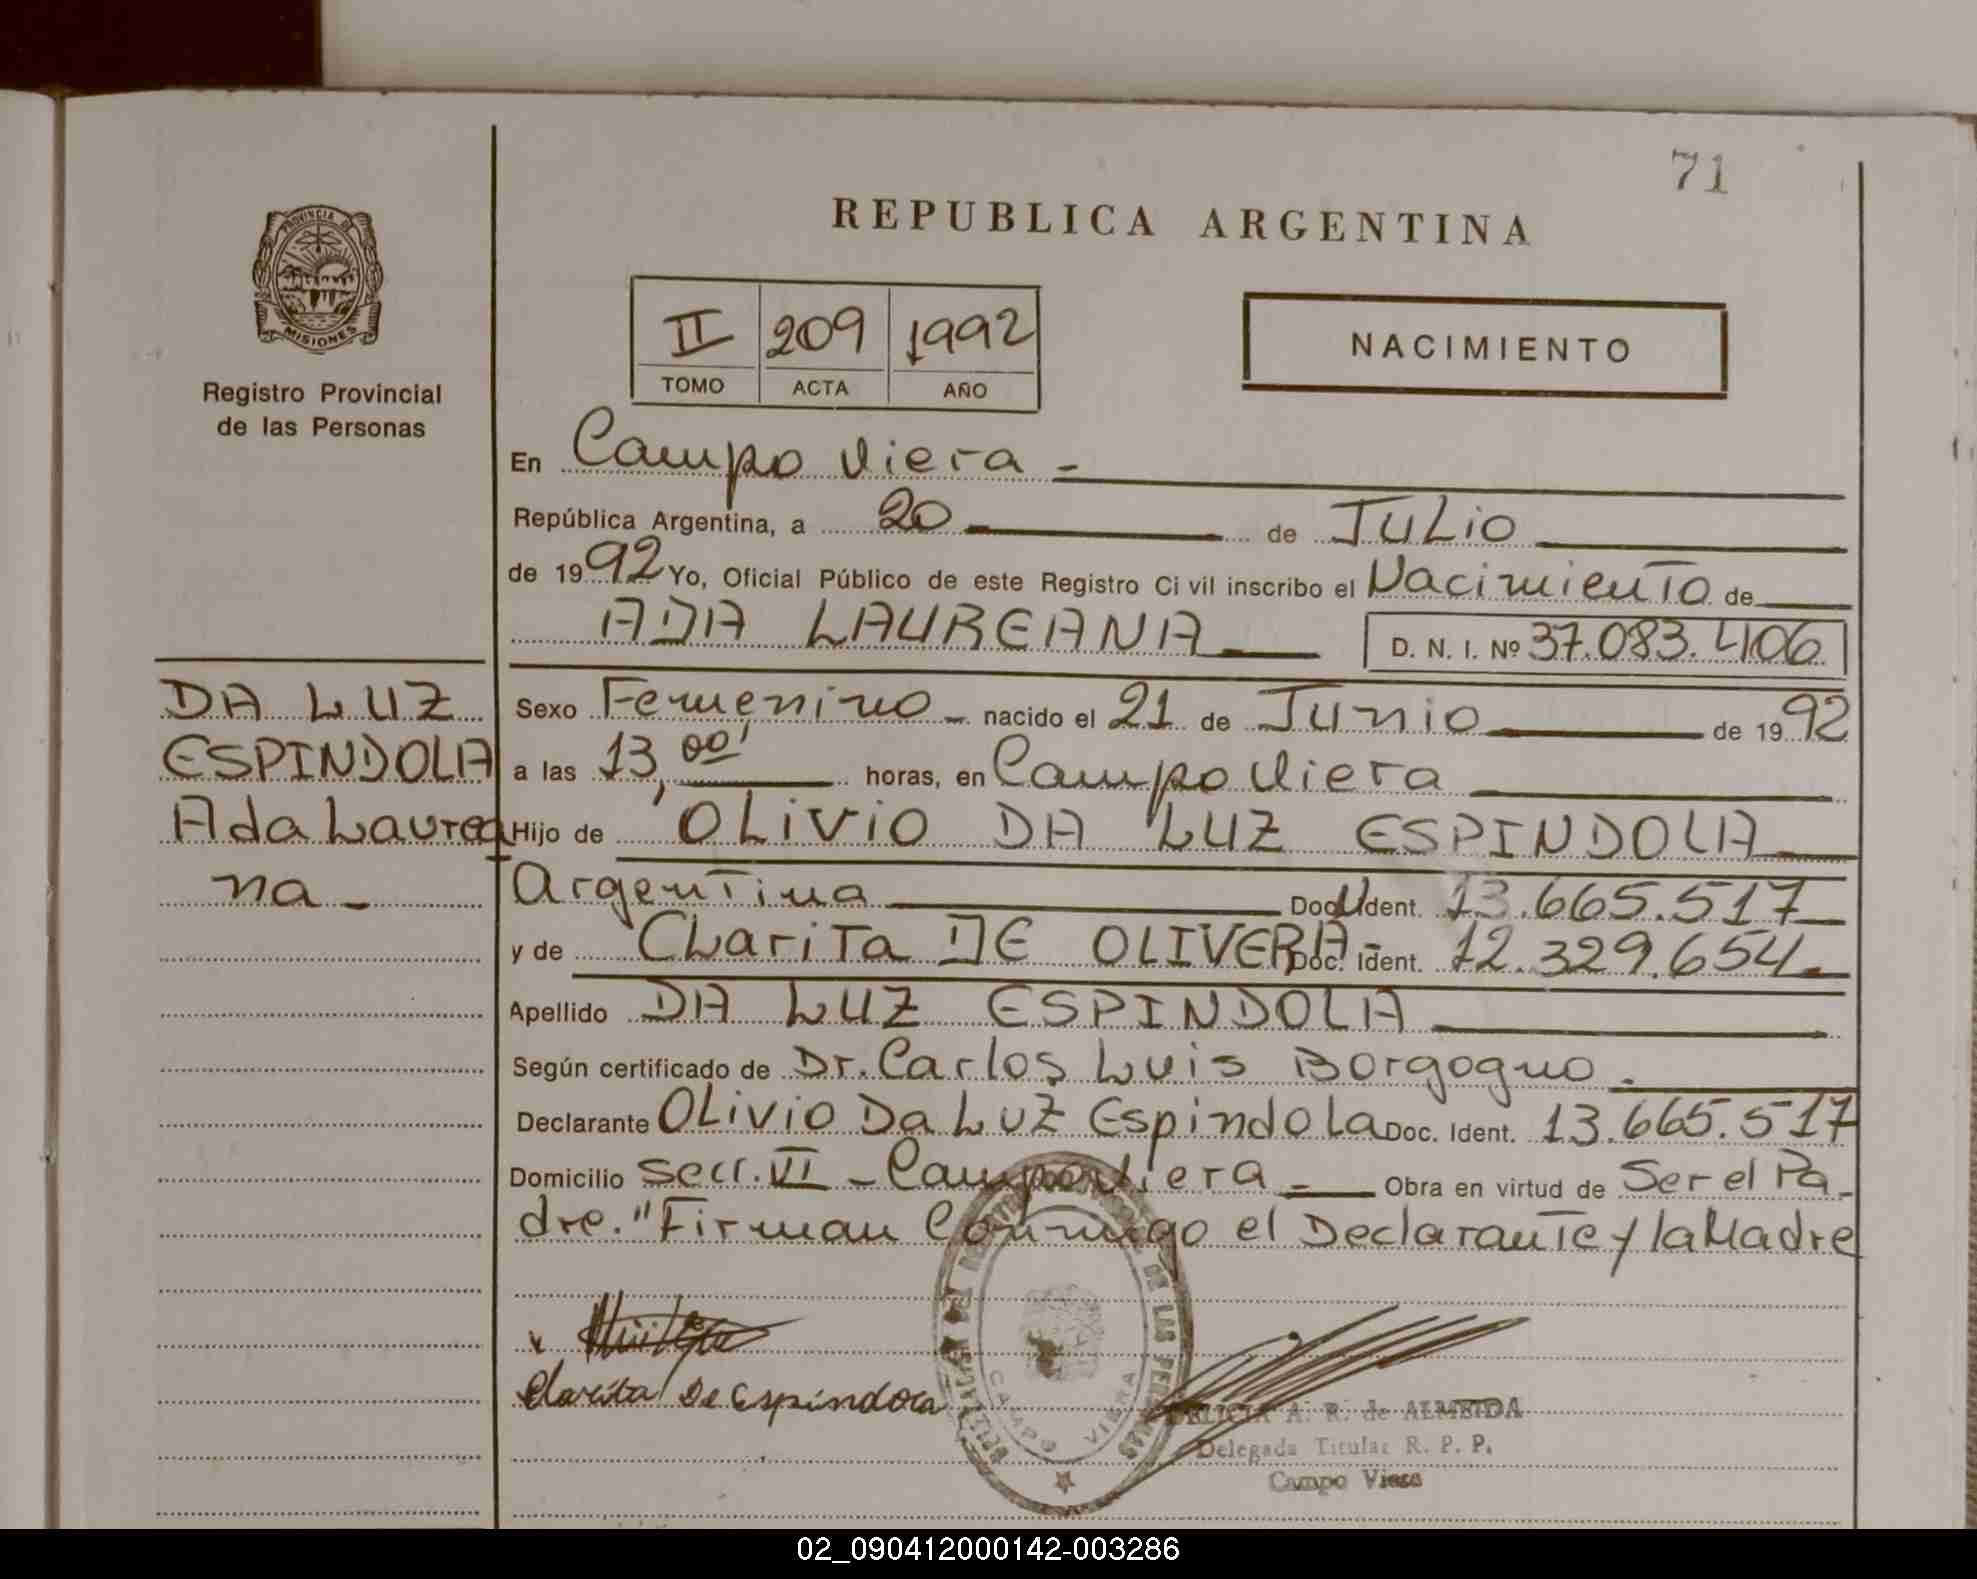 71
REPUBLICA ARGENTINA
PROVINCIA DE
MISIONES
Registro Provincial
de las Personas
II 209 1992
TOMO ACTA AÑO
NACIMIENTO
En Campo Viera -
República Argentina, a 20 de JULIO
de 1992 Yo, Oficial Público de este Registro Ci vil inscribo el Nacimiento de
ADA LAUREANA D. N. I. Nº 37.083.406
DA LUZ
ESPINDOLA
Ada Laurea
na -
Sexo Femenino - nacido el 21 de Junio de 1992
a las 13,00' horas, en Campo Viera
Hijo de OLIVIO DA LUZ ESPINDOLA
Argentina Doc. Ident. 13.665.517
y de CLariTa DE OLIVERA - Doc. Ident. 12.329.654
Apellido DA LUZ ESPINDOLA
Según certificado de Dr. Carlos Luis Borgogno.
Declarante OLivio Da Luz Espindola Doc. Ident. 13.665.517
Domicilio secc. VI - Campo Viera - Obra en virtud de Ser el Pa-
dre. "Firman Conmigo el Declarante y la Madre
x
Clarita De Espindola
DE LAS PERSONAS
CAMPO VIERA
A. R. de ALMEIDA
Delegada Titular R. P. P.
Campo Viera
02_090412000142-003286